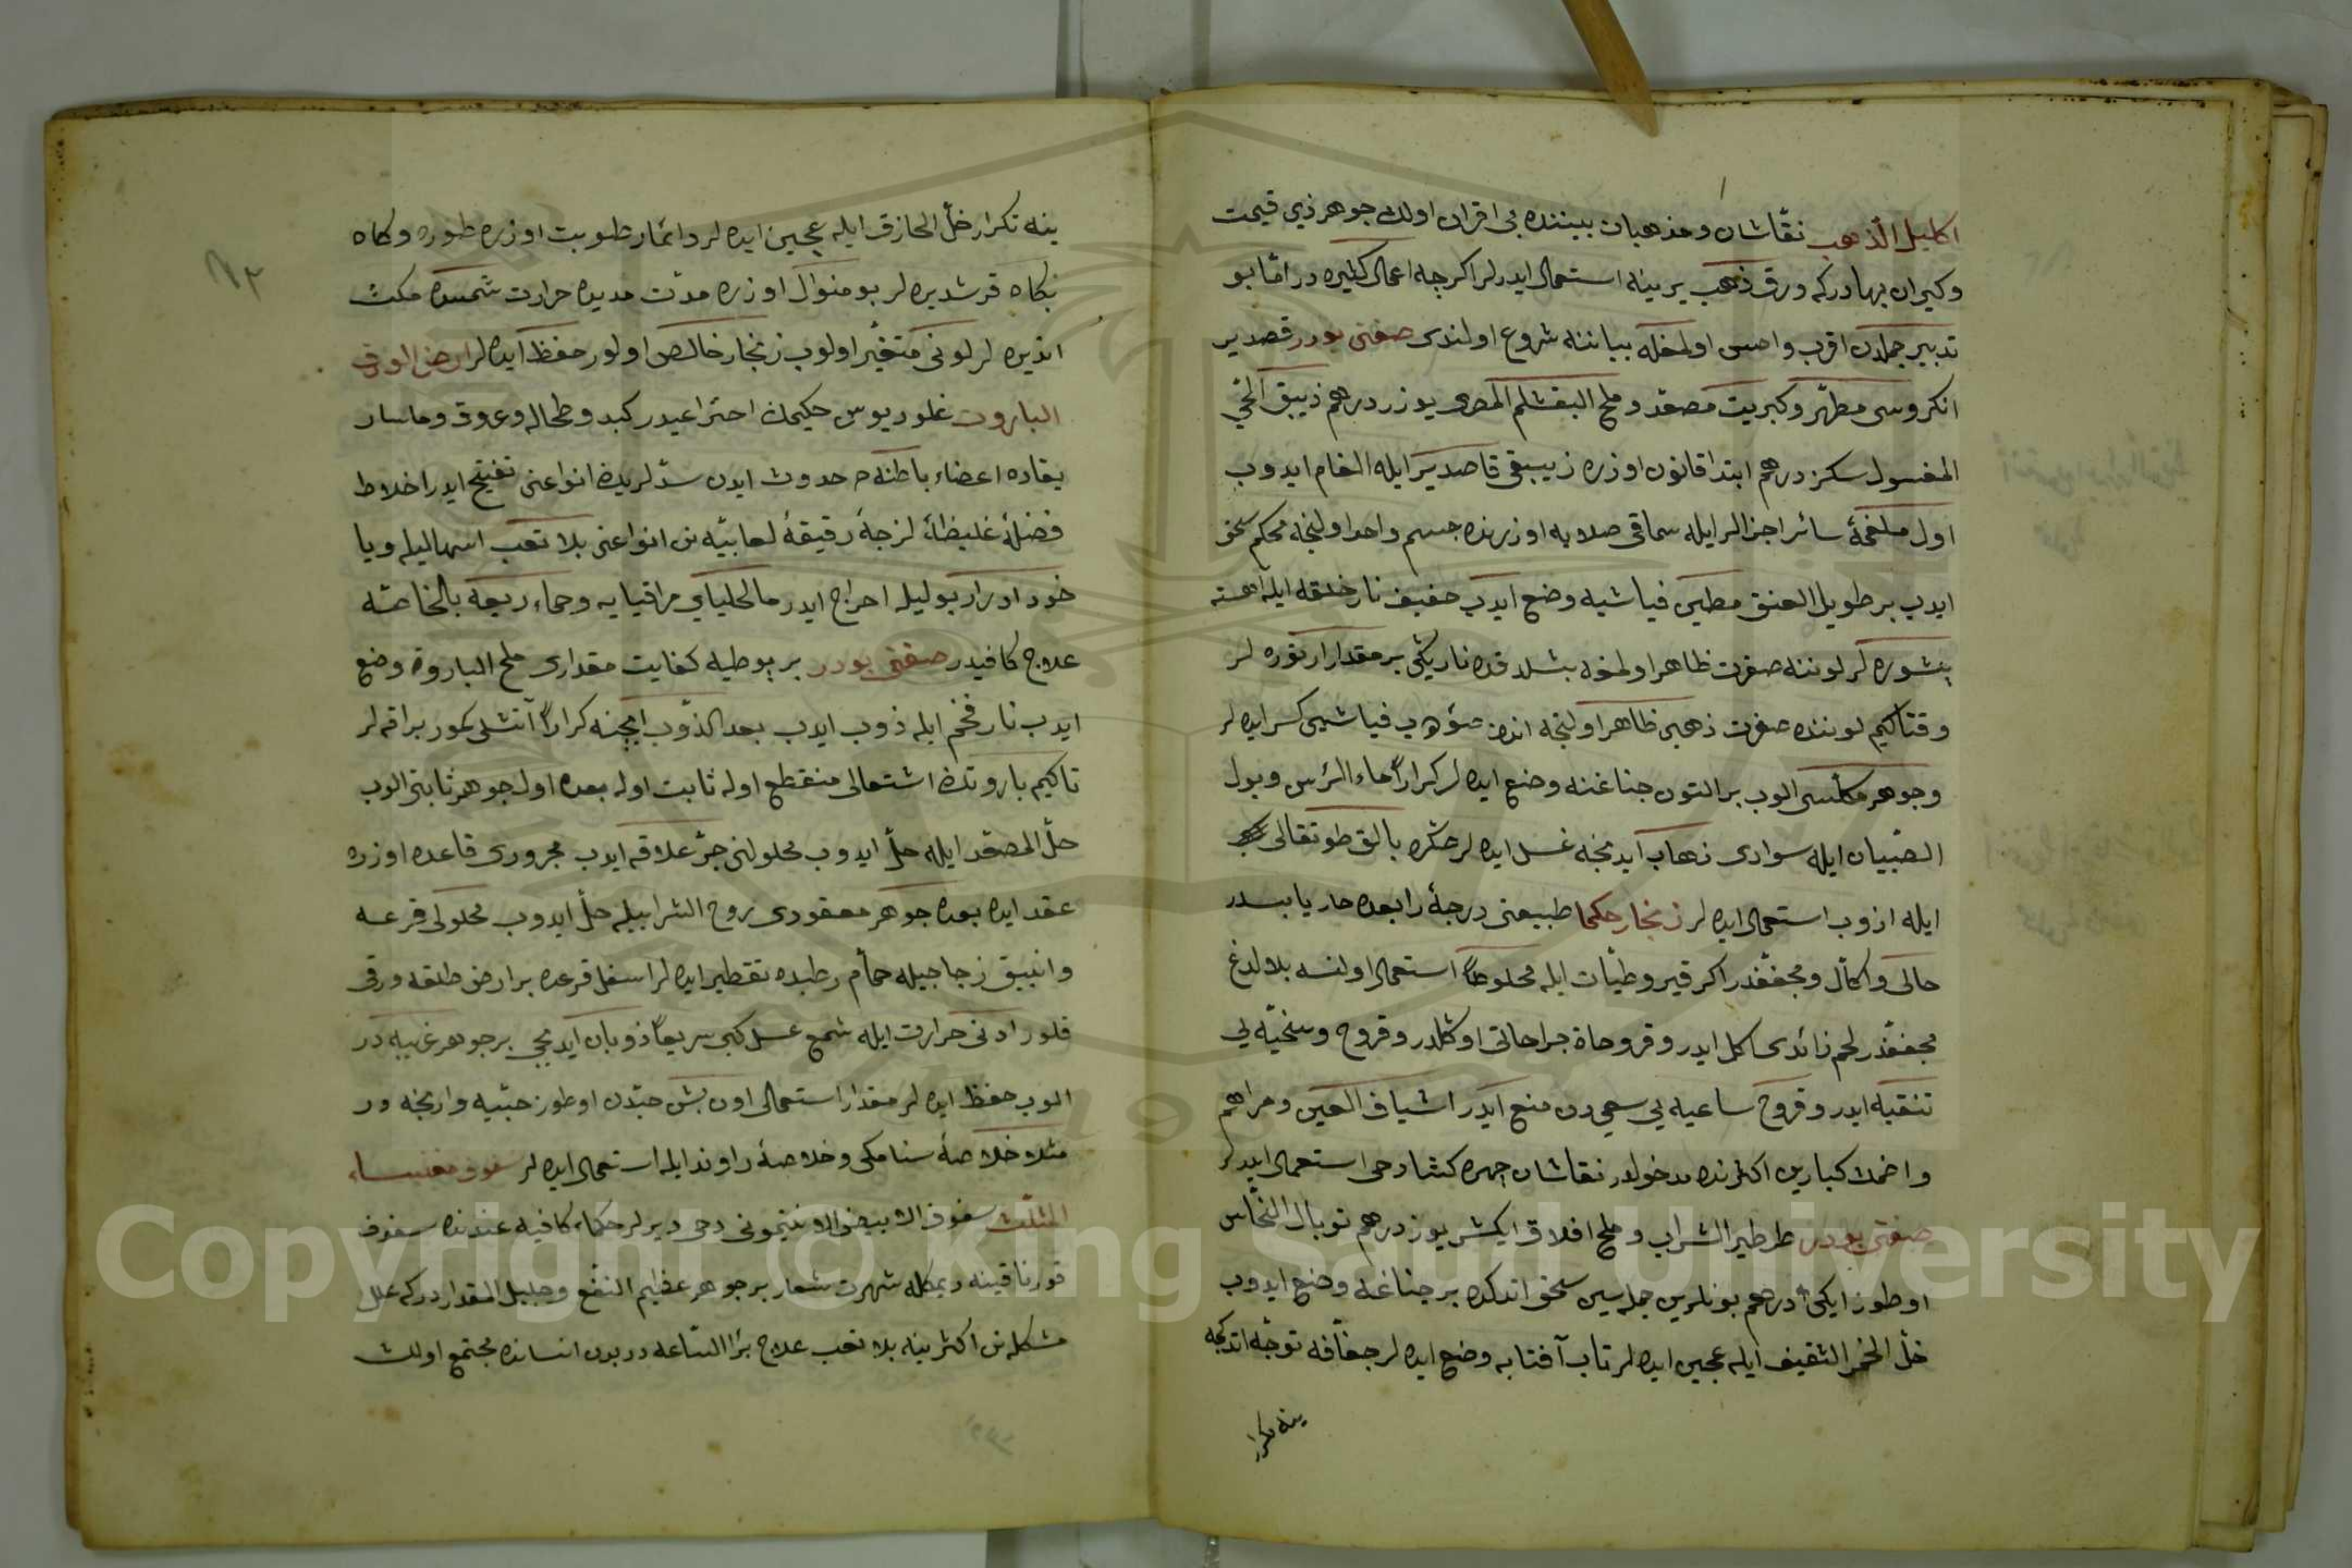 اكليل الذهب نقاشان ومذهبان بيننده بى اقران اولان جوهر ذي قيمت
وكيران بهادركه ورق ذهب يرينه استعمال ايدرلر اكرچه اعمالى كثيره در امّا بو
تدبير جملدن اقرب واحسن اولمغله بياننه شروع اولندى صفتى بودر قصدير
انكروسى مطهّر وكبريت مصعّد وملح البقشلم المصرى يوزر درهم زيبق الحّي
المغسول سكز درهم ابتدا قانون اوزره زيبقى قاصدير ايله الغام ايدوب
اول ملغمهٔ سائر اجزالر ايله سماقى صلايه اوزرنده جسم واحد اولنجه محكم سحق
ايدوب بر طويل العنق مطين فياشيه وضع ايدوب خفيف نار خلقه ايله اهسته
پشوره لر لوننه صفرت ظاهر اولمغه بشلدقده ناريكى بر مقدار ارتوره لر
وقتاكيم لوننده صفرت ذهبى ظاهر اولنجه اندن صوودب فياشيى كسر ايده لر
وجوهر مكلسى الوب بر التون چناغنه وضع ايده لر كراراً ماء الرأس وبول
الصّبيان ايله سوادى ذهاب ايدنجه غسل ايده لر صكره بالق طوتقالى
ايله ازوب استعمال ايده لر زنجار حكما طبيعتى درجهٔ رابعده حار يابسدر
حالى واكّال ومجفّفدر اكر قيروطيّات ايله مخلوطاً استعمال اولنسه بلا لدغ
مجفّفدر لحم زائدى اكل ايدر وقروحاة جراحاتى اوكلدر وقروح وسخيّه يي
تنقيه ايدر وقروح ساعيه يي سعي دن منع ايدر اشياف العين ومراهم
واضمدهٔ كبارين اكثرنده مدخولدر نقاشان چهره كشادخى استعمال ايدرلر
صفتى بودر طرطير الشراب وملح افلاق ايكيشر يوز درهم توبال النّحاس
اوطوز ايكى درهم بونلرين جمله سين سحق اتدكده بر چناغه وضع ايدوب
خلّ الخمر الثقيف ايله عجين ايده لر تاب آفتابه وضع ايده لر جفافه توجّه اتدكچه
ينه تكرار
ينه تكرار خلّ الحازق ايله عجين ايده لر دائما رطوبت اوزره طوره وكاه
بكاه قرشديره لر بو منوال اوزره مدّت مديده حرارت شمسده مكث
اتديره لر لونى متغيّر اولوب زنجار خالص اولور حفظ ايده لر ارض الورقى
البارود غلوريوس حكيمك اختراعيدر كبد وطحال وعروق وماسار
يقاده اعضاء باطنه ده حدوث ايدن سدّلريك انواعنى تفتيح ايدر اخلاط
فضلهٔ غليظهٔ لزجهٔ رقيقهٔ لعابيّه نك انواعنى بلا تعب اسهاليله ويا
خود ادرار بوليله اخراج ايدر مالخلياي مراقيايه وحماء ربيعه بالخاصّه
علاج كافيدر صفتى بودر بر پوطيه كفايت مقدارى ملح البارود وضع
ايدوب نار فخم ايله ذوب ايدوب بعد الذّوب ايچنه كراراً آتشلى كمور براقه لر
تاكيم بارودك اشتعالى منقطع اوله ثابت اوله بعده اول جوهر ثابتى الوب
خلّ المصعّد ايله حلّ ايدوب محلولنى جرّ علاقه ايدوب مجرورى قاعده اوزره
عقد ايده بعده جوهر معقودى روح الشرابيله حلّ ايدوب محلولى قرعه
وانبيق زجاجيله حمّام رطبده تقطير ايده لر اسفل قرعده بر ارض طلقه ورقى
قلور ادنى حرارت ايله شمع عسل كبى سريعاً ذوبان ايديجى بر جوهر غريبه در
الوب حفظ ايده لر مقدار استعمالى اون بش حبّدن اوطوز حبّيه وارنجه در
مثلا خلاصهٔ سنامكى وخلاصهٔ راوند ايله استعمال ايده لر سفوف مغنيساء
المثلّث سفوف الابيض الانتيمونى دخى ديرلر حكماء كافيه عندنده سفوف
قورناقينه ديمكله شهرت شعار بر جوهر عظيم النفع وجليل المقداردركه علل
مشكله نك اكثرينه بلا تعب علاج برّا السّاعه در بدن انسانده مجتمع اولان